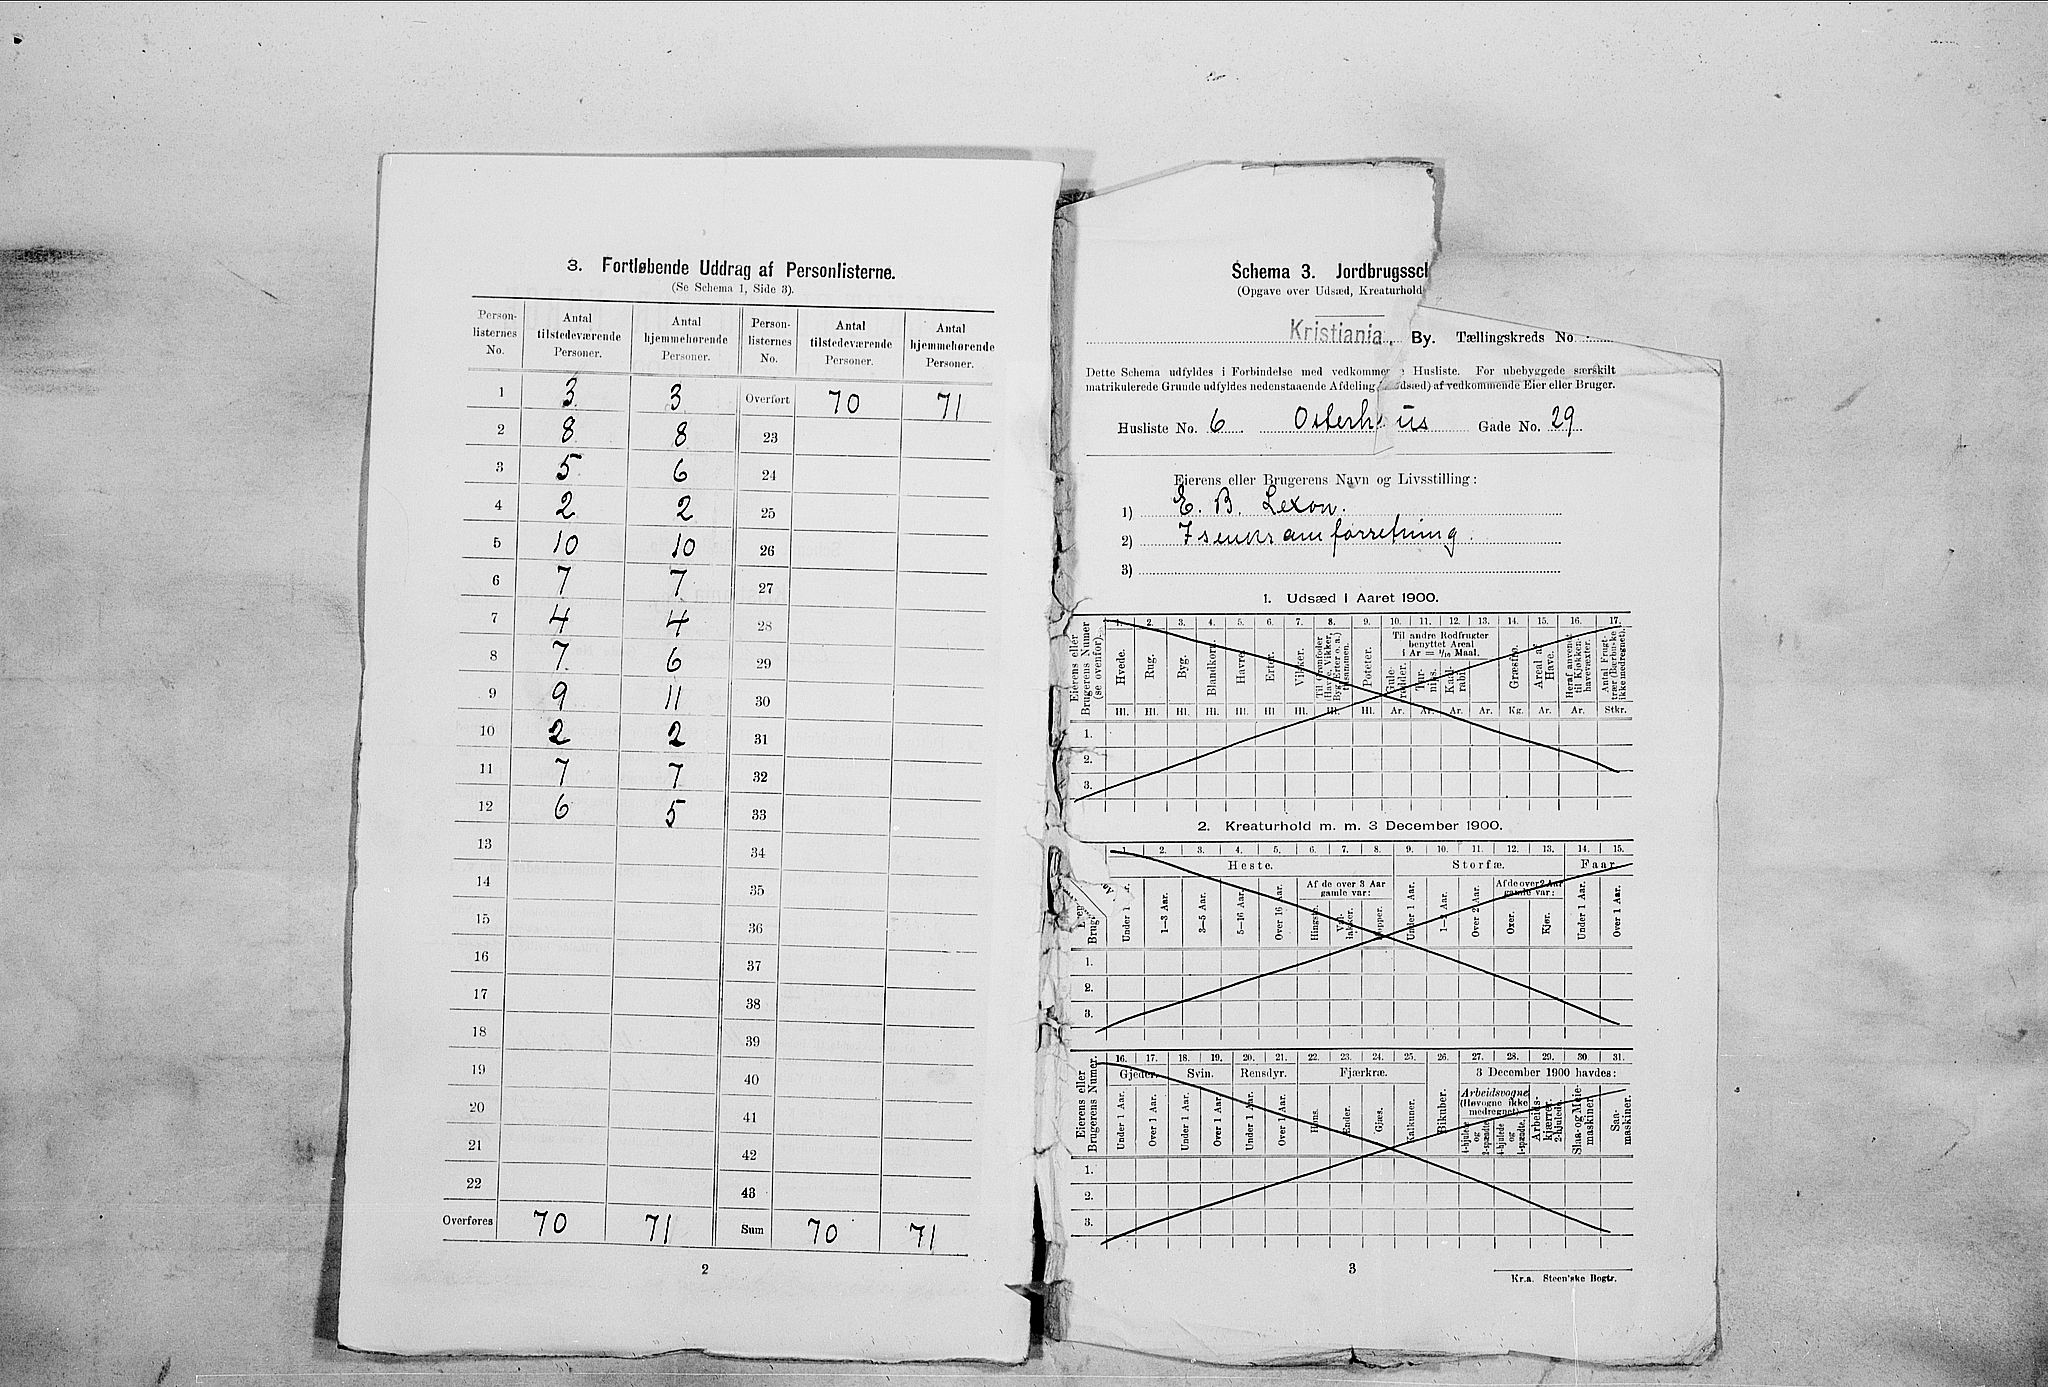 3. Fortløbende Uddrag af Personlisterne.
(Se Schema 1, Side 3).
Person-listernes No. | Antal tilstedeværende Personer. | Antal hjemmehørende Personer. | Person-listernes No. | Antal tilstedeværende Personer. | Antal hjemmehørende Personer.
1 3 3 Overført 70 71
2 8 8 23
3 5 6 24
4 2 2 25
5 10 10 26
6 7 7 27
7 4 4 28
8 7 6 29
9 9 11 30
10 2 2 31
11 7 7 32
12 6 5 33
13 34
14 35
15 36
16 37
17 38
18 39
19 40
20 41
21 42
22 43
Overføres 70 71 Sum 70 71
2
Schema 3. Jordbrugssc
(Opgave over Udsæd, Kreaturhold
Kristiania, By. Tællingskreds No
Dette Schema udfyldes i Forbindelse med vedkommen e Husliste. For ubebyggede særskilt
matrikulerede Grunde udfyldes nedenstaaende Afdeling dsæd) af vedkommende Eier eller Bruger.
Husliste No. 6 Osterhaus Gade No. 29
Eierens eller Brugerens Navn og Livsstilling:
1) E. B. Lexow.
2) Isenkramforretning.
3)
1. Udsæd i Aaret 1900.
Eierens eller Brugerens Numer (se ovenfor).
1. 2. 3. 4. 5. 6. 7. 8. 9. 10. 11. 12. 13. 14. 15. 16. 17.
Til andre Rodfrugter benyttet Areal
1 Ar = 1/10 Maal.
Hvede. Rug. Byg. Blandkorn. Havre. Erter. Vikker. Til Grønfoder (Havre, Vikker, Byg, Erter o. a.) tilsammen. Poteter. Gulerødder. Turnips. Kaalrabi. Græsfrø. Areal af Have. Heraf anvendt til Kjøkkenhavevæxter. Antal Frugttrær (Bærbuske ikke medregnet).
Hl. Hl. Hl. Hl. Hl. Hl. Hl. Hl. Hl. Ar. Ar. Ar. Ar. Kg. Ar. Ar. Stkr.
1.
2.
3.
2. Kreaturhold m. m. 3 December 1900.
1. 2. 3. 4. 5. 6. 7. 8. 9. 10. 11. 12. 13. 14. 15.
Heste. Storfæ. Faar
Af de over 3 Aar gamle var: Af de over 2 Aar gamle var:
Under 1 Aar. 1—3 Aar. 3—5 Aar. 5—16 Aar. Over 16 Aar. Hingste. Vallakker. Hopper. Under 1 Aar. 1—2 Aar. Over 2 Aar. Oxer. Kjør. Under 1 Aar. Over 1 Aar.
1.
2.
3.
Eierens eller Brugerens Numer.
16. 17. 18. 19. 20. 21. 22. 23. 24. 25. 26. 27. 28. 29. 30 31.
Gjeder. Svin. Rensdyr. Fjærkræ. 3 December 1900 havdes:
Arbeidsvogne (Høvogne ikke medregnet).
Under 1 Aar. Over 1 Aar. Under 1 Aar. Over 1 Aar. Under 1 Aar. Over 1 Aar. Høns. Ender. Gjæs. Kalkuner. Bikuber. 4-hjulede og 2-spændte. 4-hjulede og 1-spændte. Arbeids-kjærrer, 2-hjulede. Slaa- og Meie-maskiner. Saa-maskiner.
1.
2.
3.
3
Kr.a. Steen'ske Bogtr.